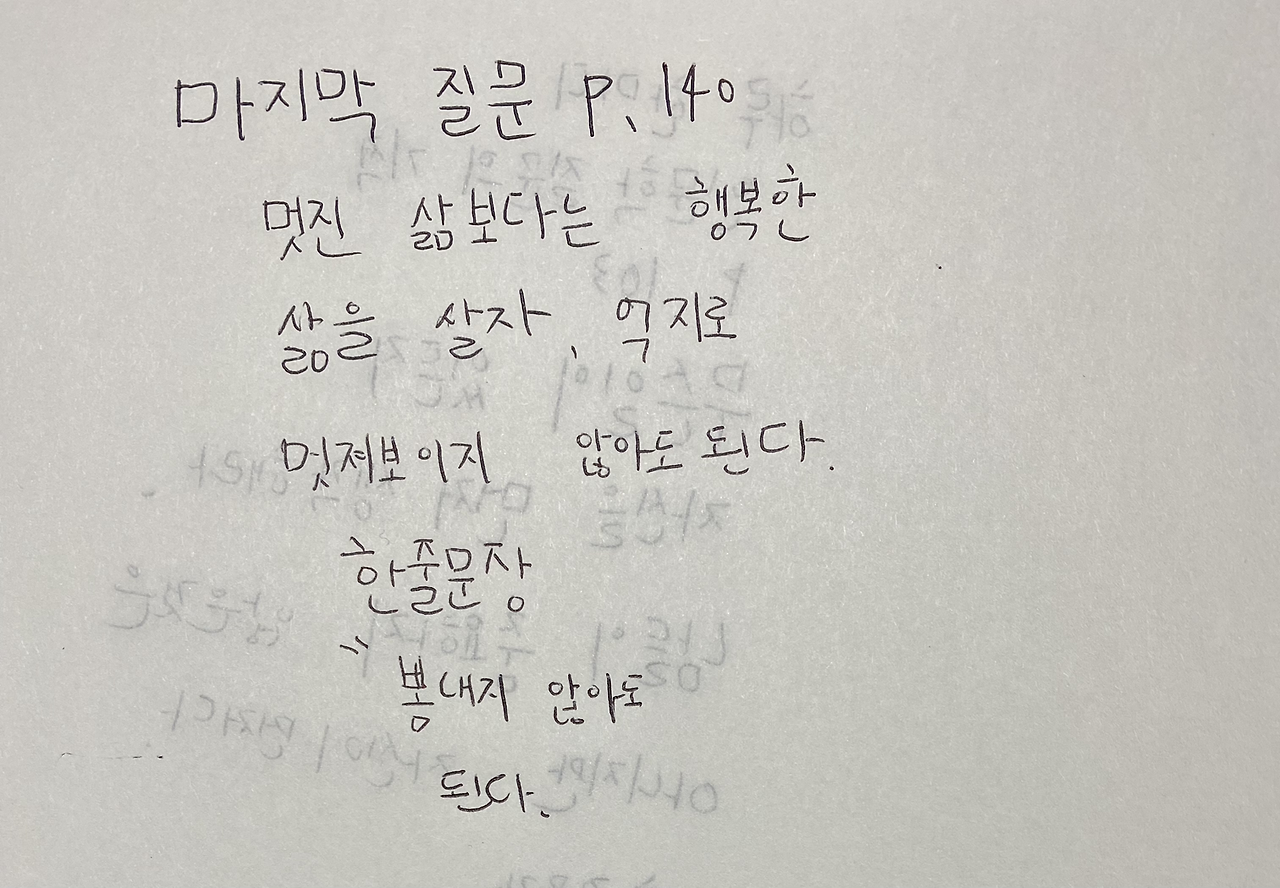 마지막 질문 P. 140
멋진 삶보다는 행복한
삶을 살자. 억지로
멋져보이지 않아도 된다.
한줄문장
" 뽐내지 않아도
된다.